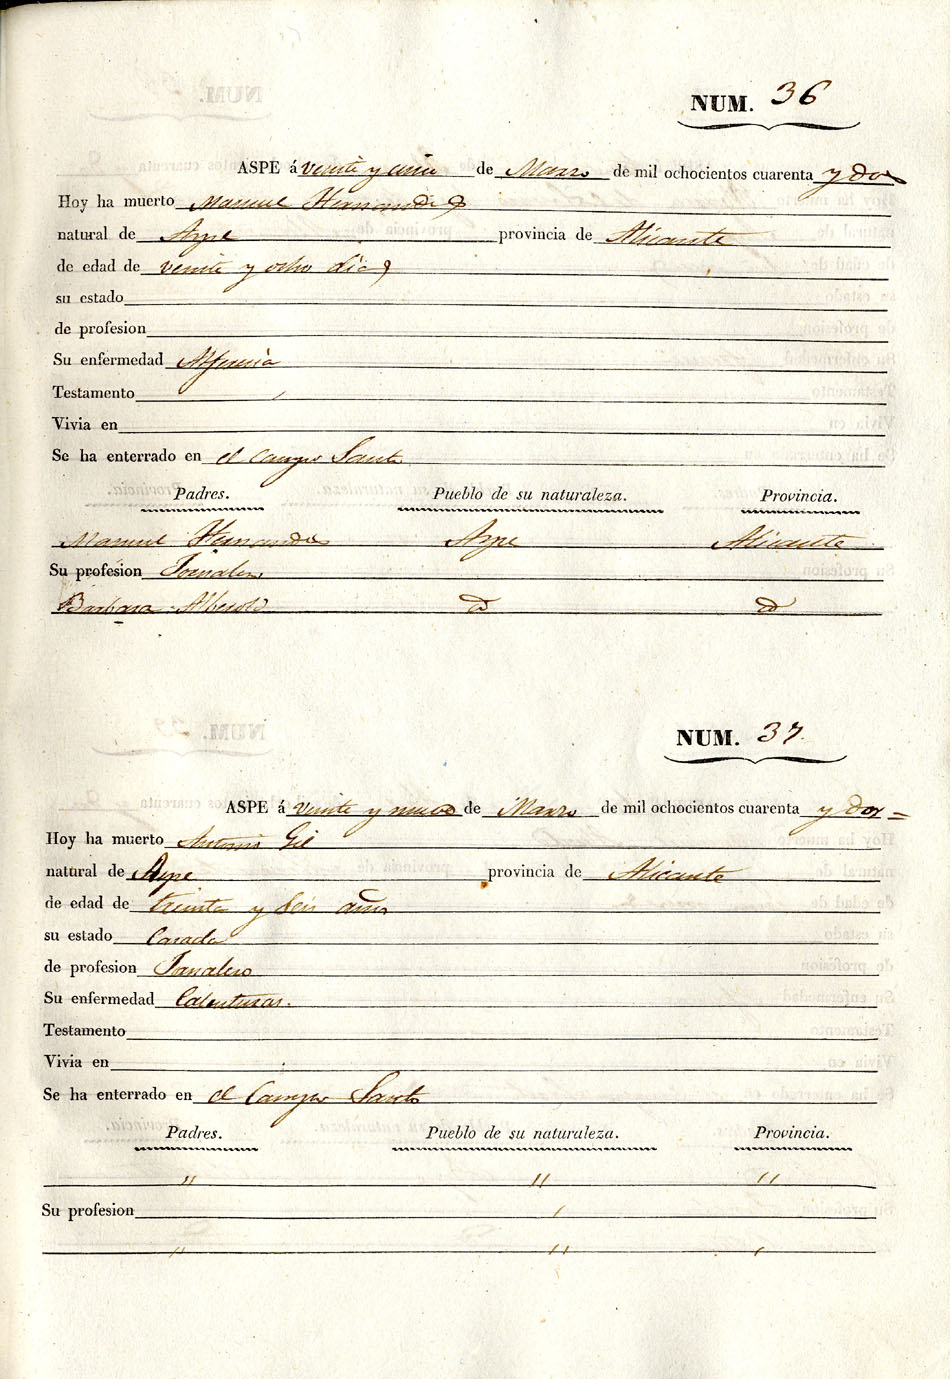 NUM. 36
ASPE á veinte y una de Marzo de mil ochocientos cuarenta y dos
Hoy ha muerto Manuel Hernandes
natural de Aspe provincia de Alicante
de edad de veinte y ocho dias
su estado
de profesion
Su enfermedad Alferecia
Testamento
Vivia en
Se ha enterrado en el Campo Santo
Padres. Pueblo de su naturaleza. Provincia.
Manuel Hernandes Aspe Alicante
Su profesion Jornalero
Barbara Alberola id id
NUM. 37.
ASPE á veinte y nueve de Marzo de mil ochocientos cuarenta y dos=
Hoy ha muerto Antonio Gil
natural de Aspe provincia de Alicante
de edad de treinta y seis años
su estado Casado
de profesion Jornalero
Su enfermedad Calenturas.
Testamento
Vivia en
Se ha enterrado en el Campo Santo
Padres. Pueblo de su naturaleza. Provincia.
" " "
Su profesion
" " "